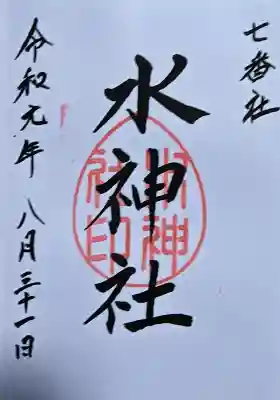 七番社
水神社
令和元年 八月三十一日